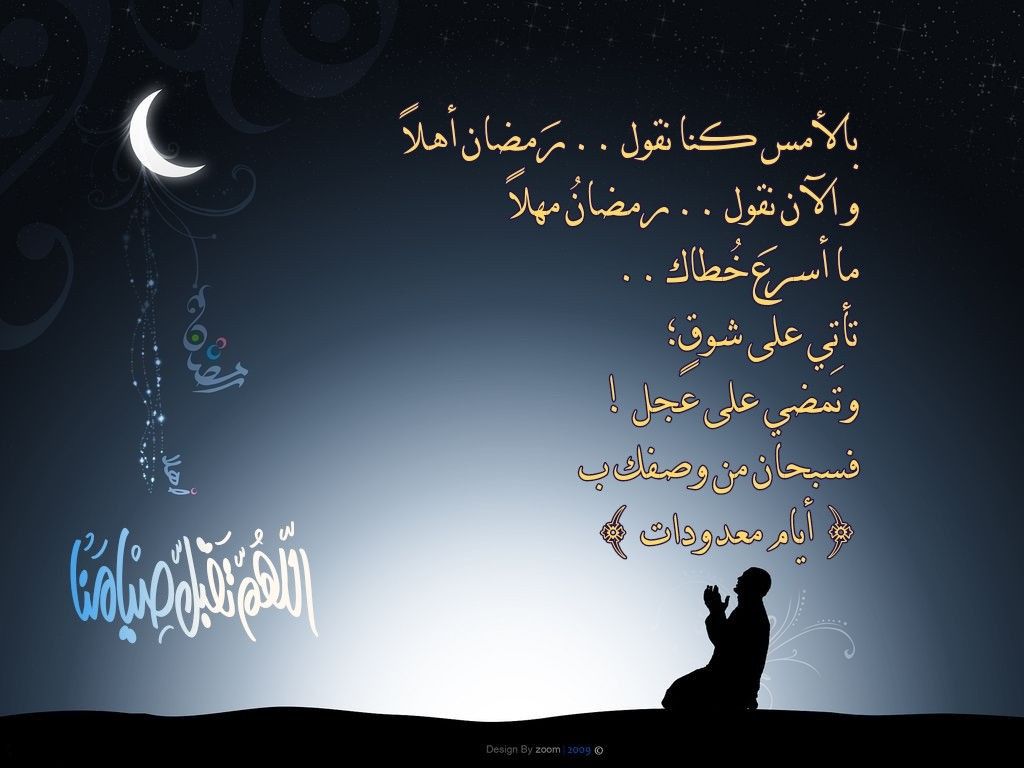 بالأمس كنا نقول . . رَمضان أهلاً
و الآن نقول . . رمضانُ مهلاً
ما أسرعَ خُطاك . .
تأتِي على شوقٍ؛
وتَمضي على عَجل !
فسبحان من وصفك ب
﴿ أيام معدودات ﴾
رمضان
أهلا
اللّهُمّ تَقَبّل صِيَامَنَا
Design By zoom | 2009 ©